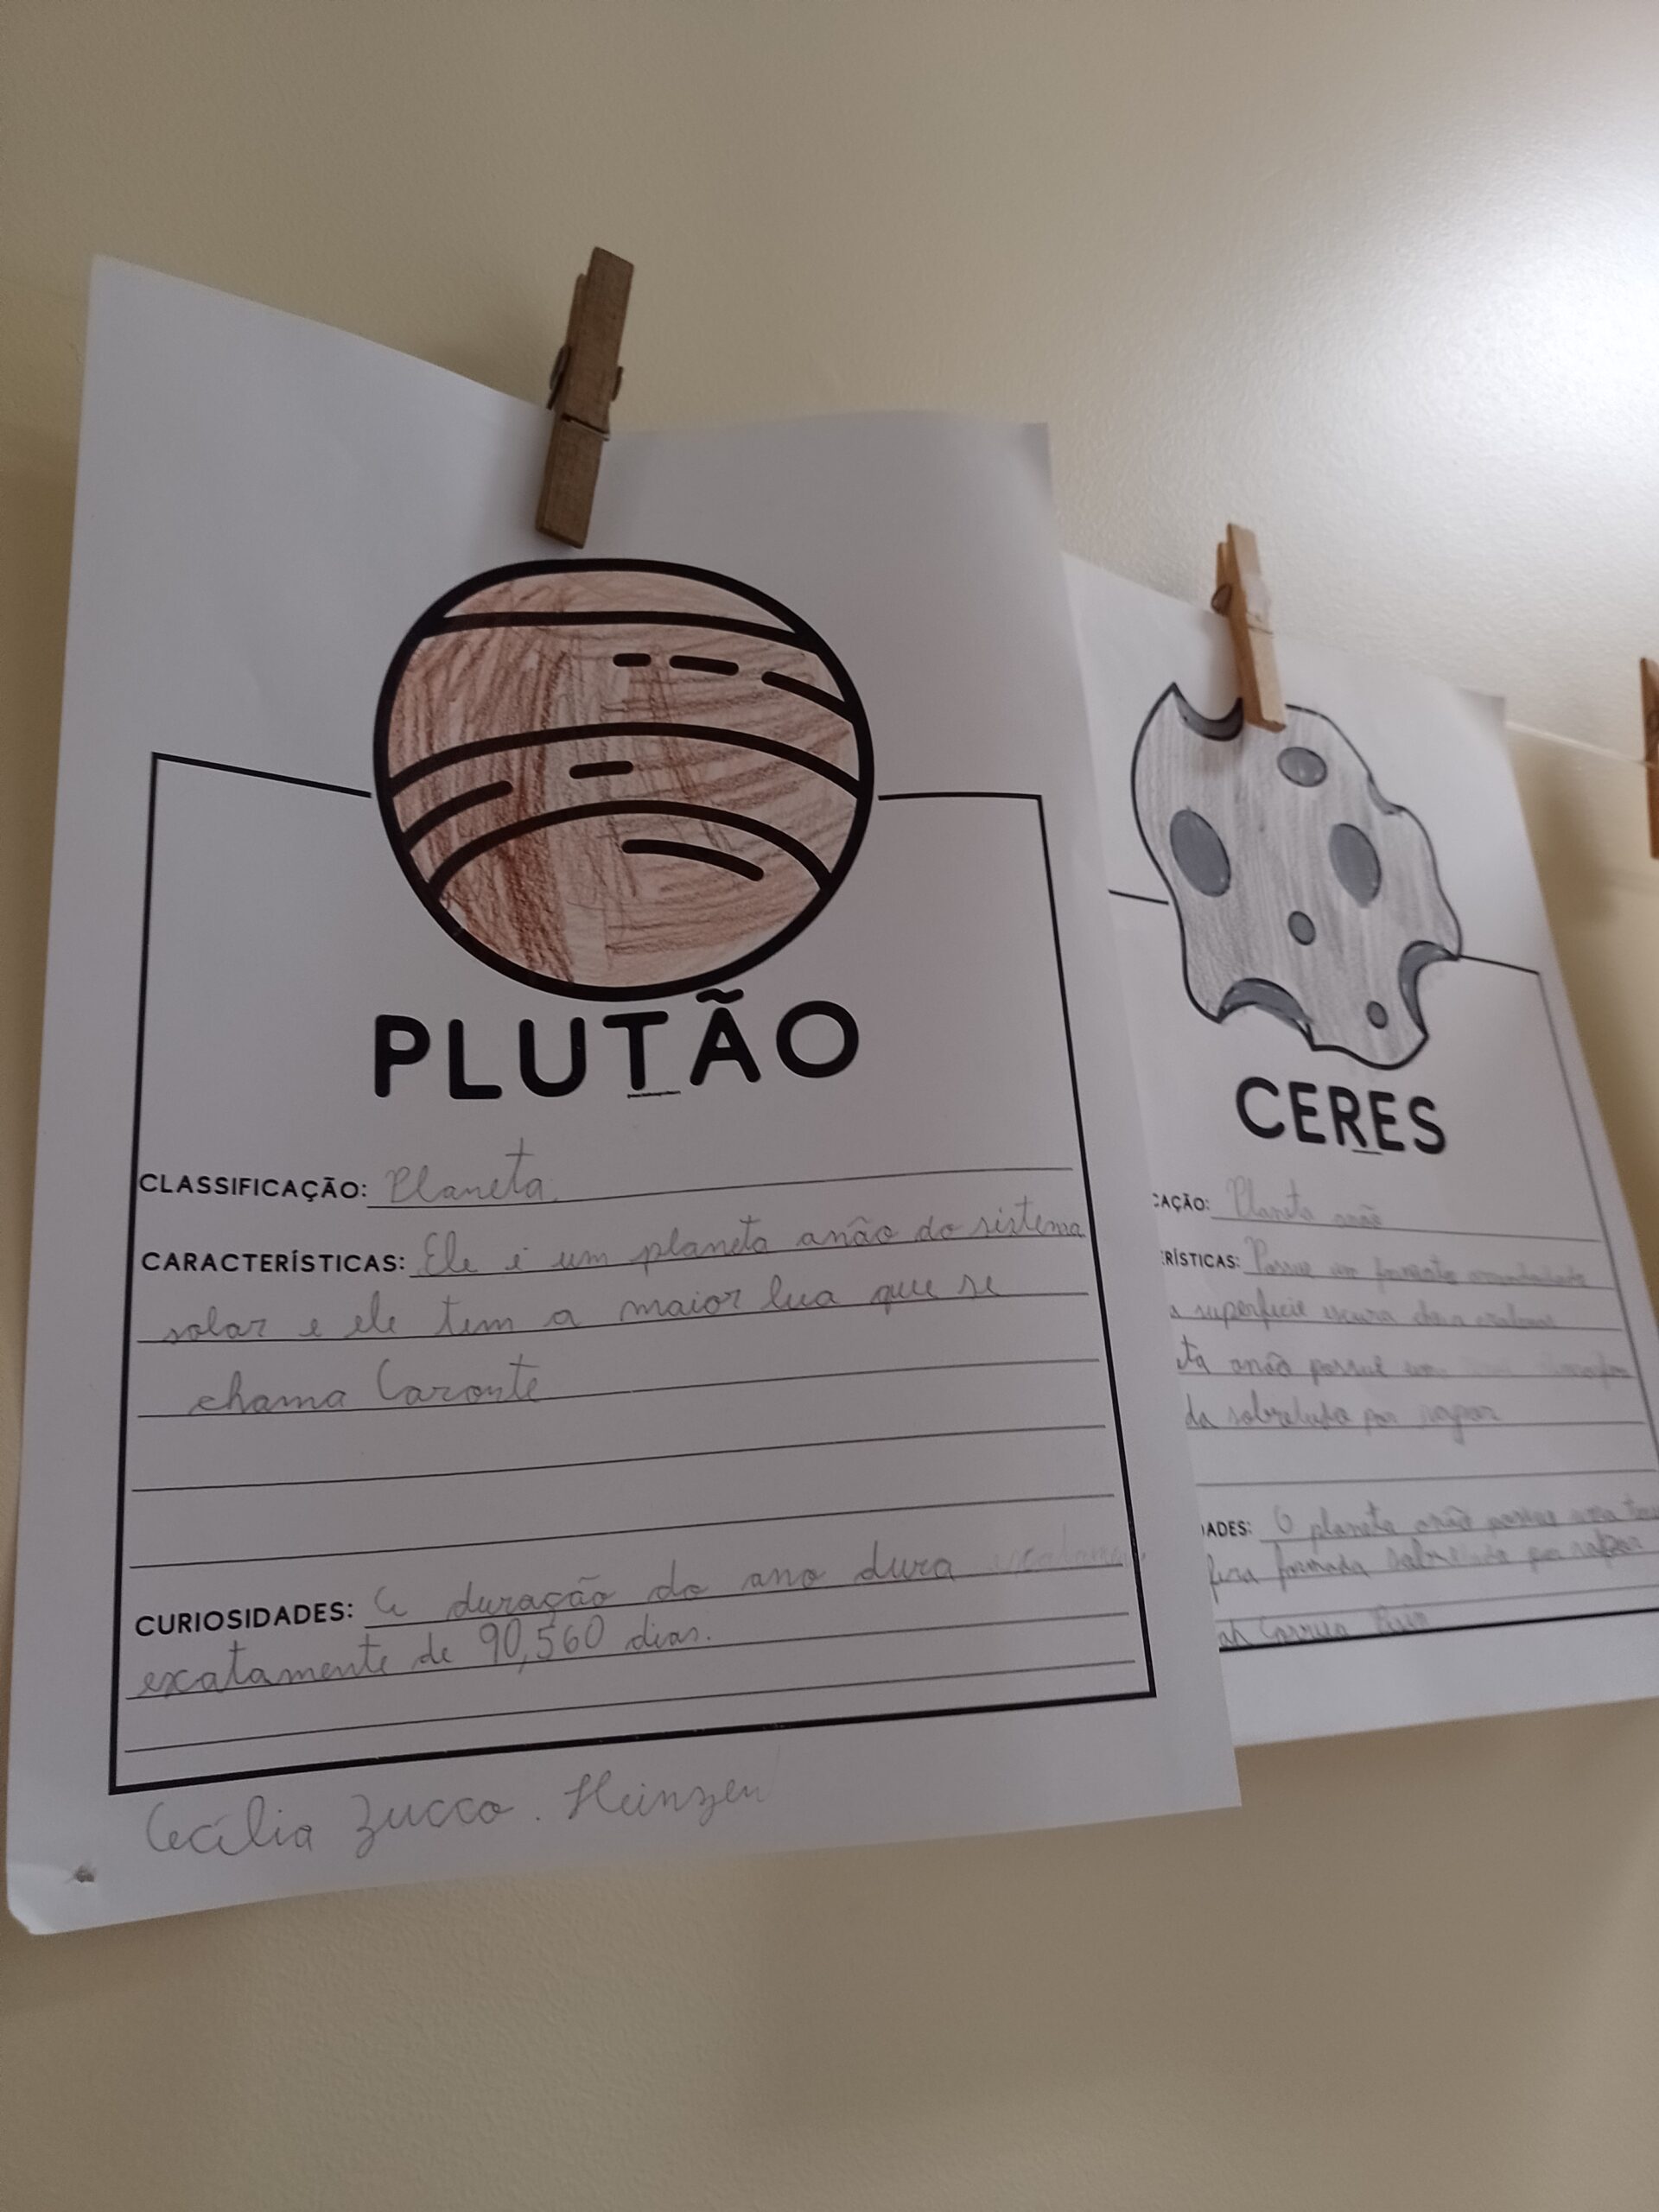 PLUTÃO
CLASSIFICAÇÃO: Planeta.
CARACTERÍSTICAS: Ele é um planeta anão do sistema
solar e ele tem a maior lua que se
chama Caronte
CURIOSIDADES: A duração do ano dura
exatamente de 90,560 dias.
Cecília Zucco. Heinzen
CERES
CAÇÃO: Planeta anão
RÍSTICAS: Possue um formato arredondado
a superficie escura
eta anão possue um
da sobretudo por vapor
ADES: O planeta anão possue uma
fera formada sobretudo por vapor
ah Correa